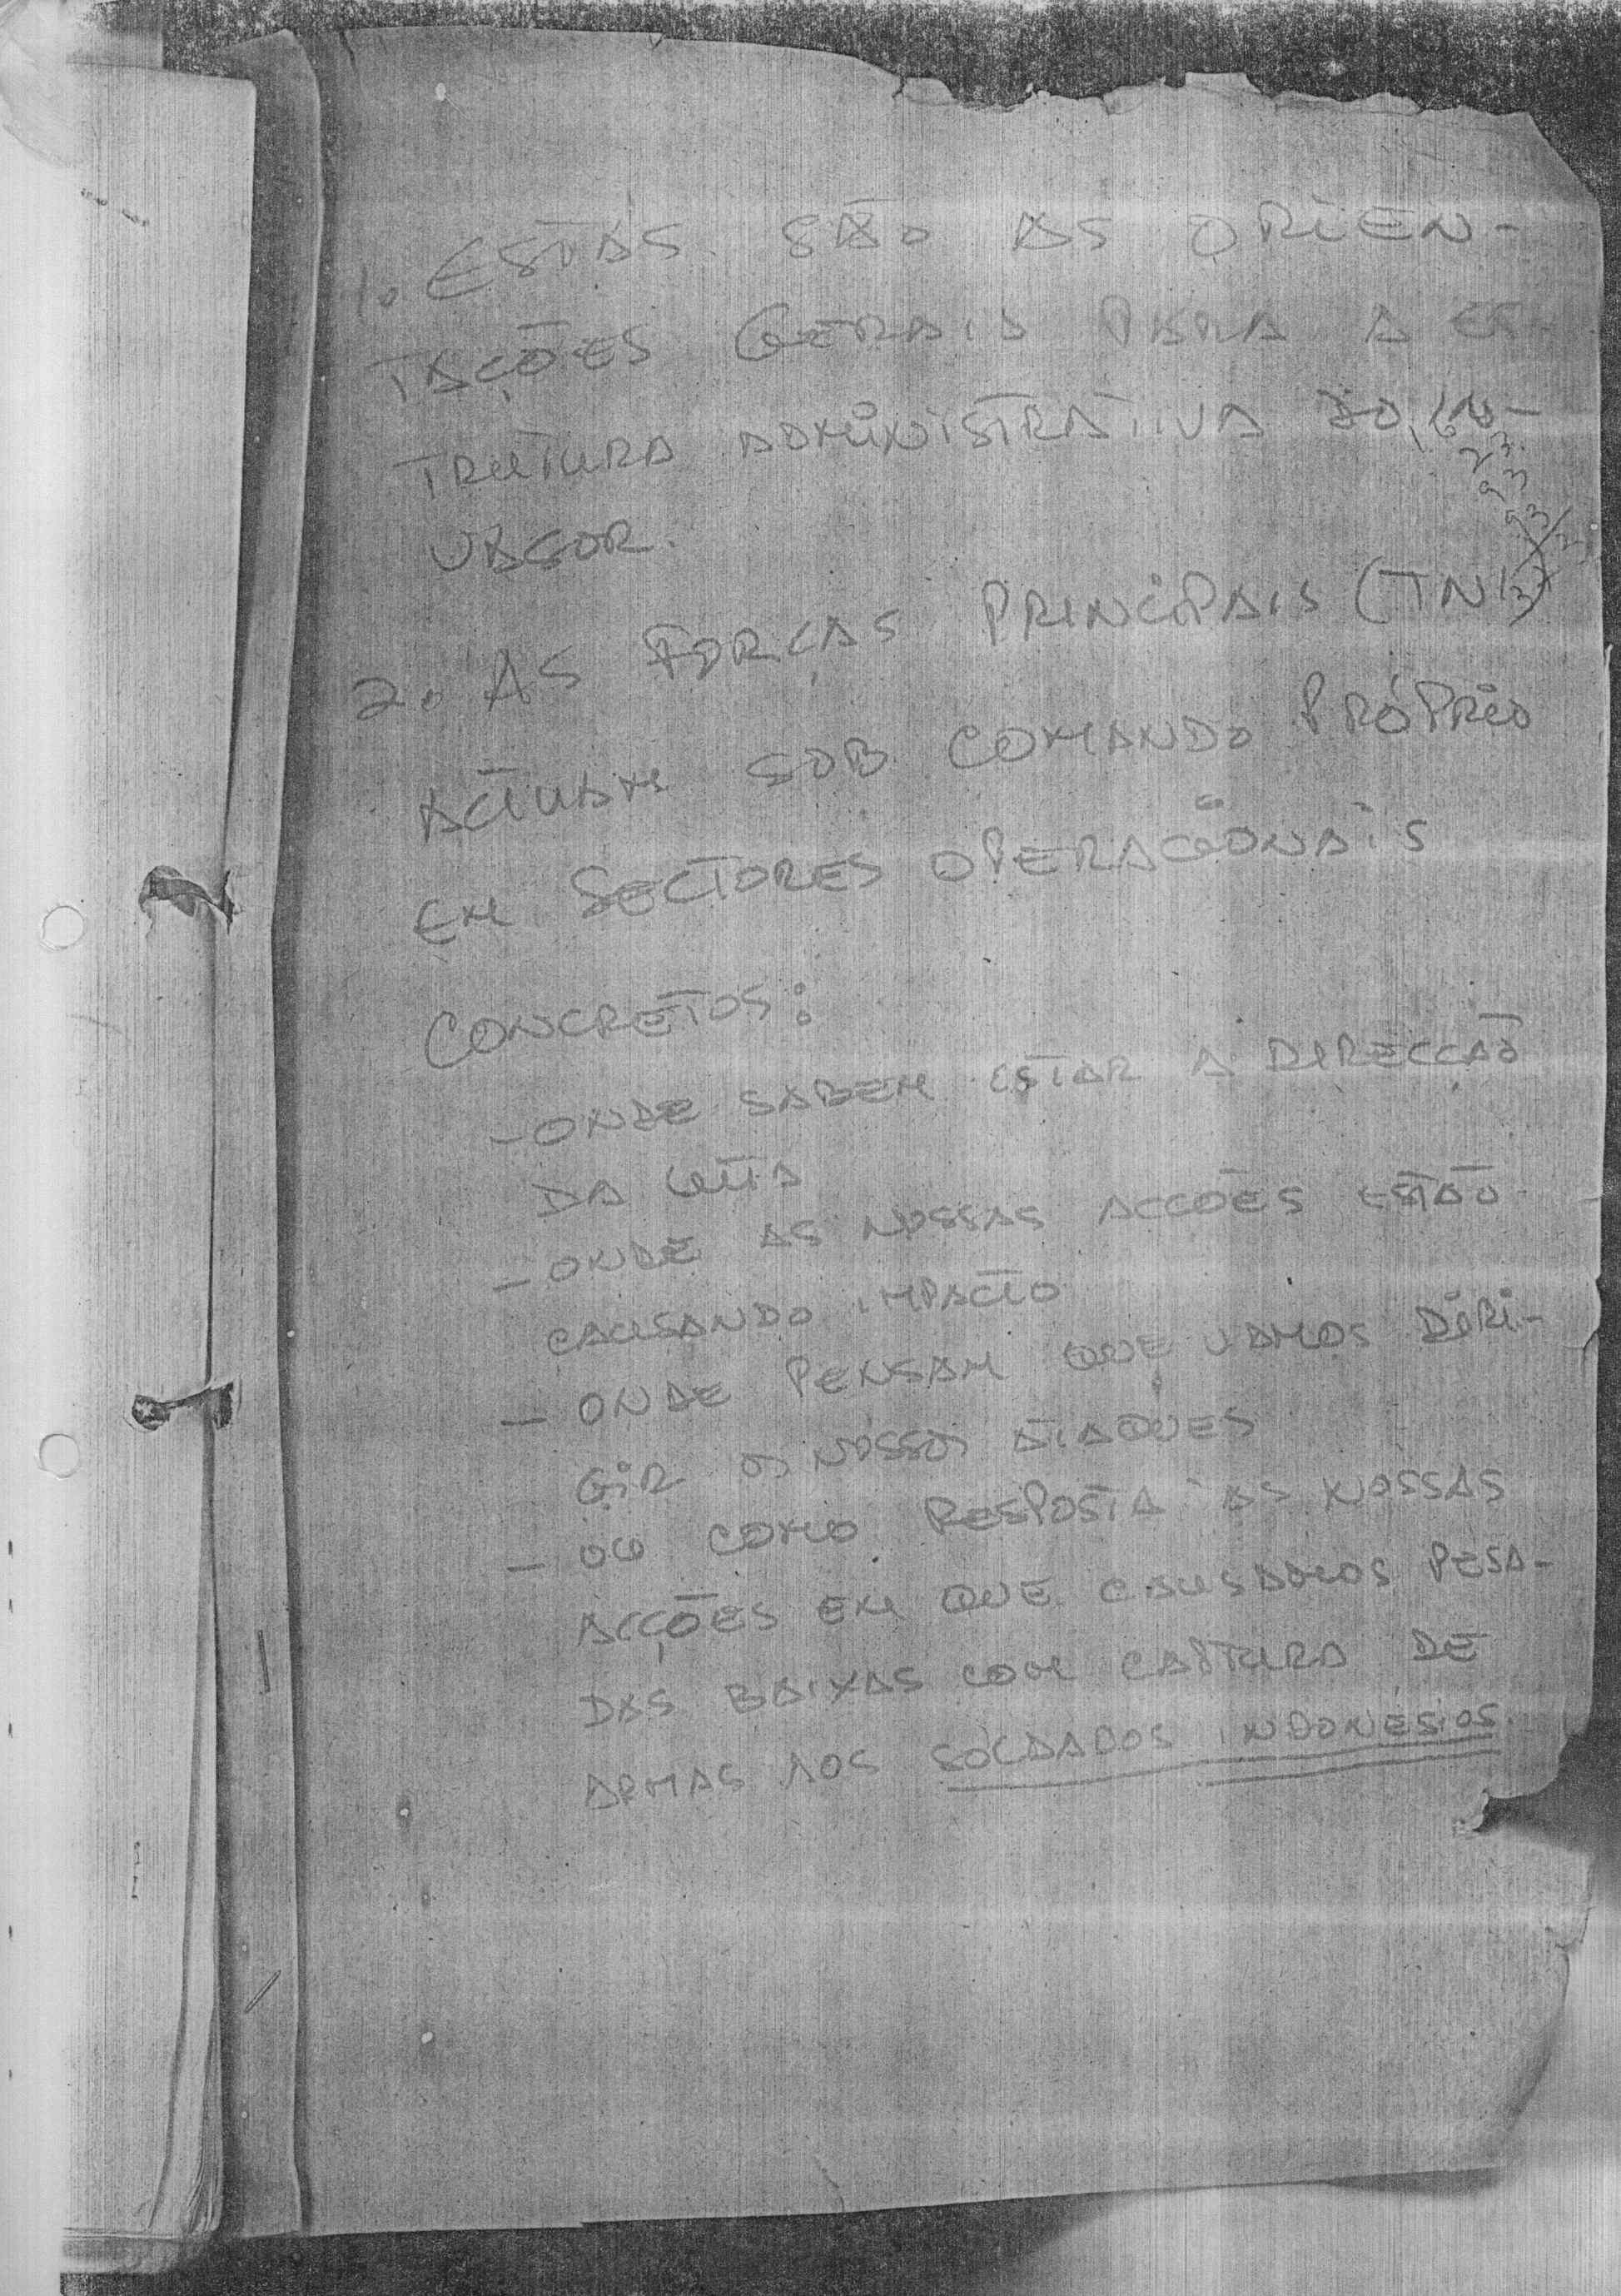 1. ESTAS SÃO AS ORIEN-
TAÇÕES GERAIS PARA A ES-
TRUTURA ADMINISTRATIVA DO IN-
VASOR.
2. AS FORÇAS PRINCIPAIS (TNI)
ACTUAM SOB COMANDO PRÓPRIO
EM SECTORES OPERACIONAIS
CONCRETOS:
- ONDE SABEM ESTAR A DIRECÇÃO
DA LUTA
- ONDE AS NOSSAS ACÇÕES ESTÃO
CAUSANDO IMPACTO
- ONDE PENSAM QUE VAMOS DIRI-
GIR OS NOSSOS ATAQUES
- OU COMO RESPOSTA ÀS NOSSAS
ACÇÕES EM QUE CAUSAMOS PESA-
DAS BAIXAS COM CAPTURA DE
ARMAS AOS SOLDADOS INDONESIOS.